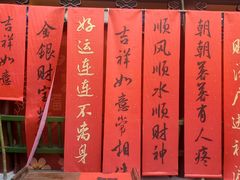 财源广进
朝朝暮暮有人疼
顺风顺水顺财神
吉祥如意常相伴
好运连连不离身
金银财宝